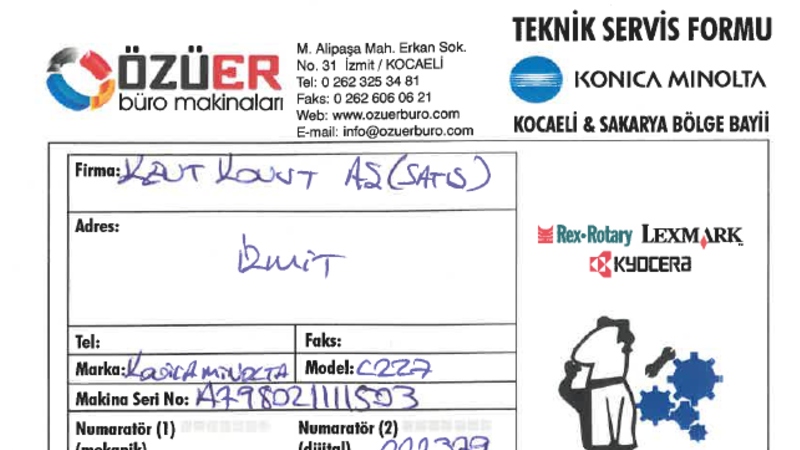 ÖZÜER
büro makinaları
M. Alipaşa Mah. Erkan Sok.
No. 31 İzmit / KOCAELİ
Tel: 0 262 325 34 81
Faks: 0 262 606 06 21
Web: www.ozuerburo.com
E-mail: info@ozuerburo.com
TEKNİK SERVİS FORMU
KONICA MINOLTA
KOCAELİ & SAKARYA BÖLGE BAYİİ
Firma: KENT KONUT AŞ (SATIŞ)
Adres:
İZMİT
Rex•Rotary LEXMARK
KYOCERA
Tel: Faks:
Marka: KONICA MINOLTA Model: C227
Makina Seri No: A798021111503
Numaratör (1) Numaratör (2)
(mekanik) (dijital)